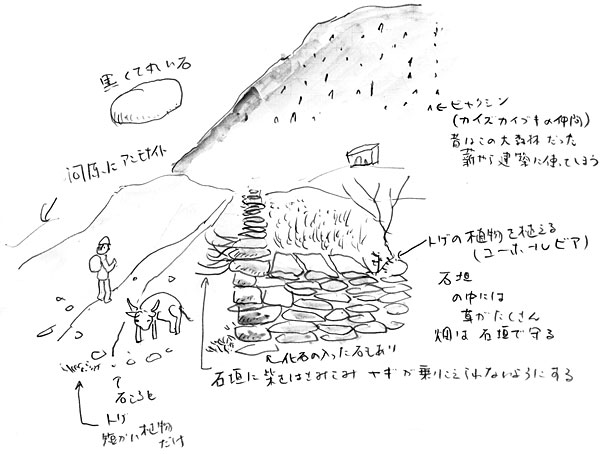 黒くてれい石
河原にアンモナイト
ビャクシン
(カイズカイブキの仲間)
昔はこの大森林だった
薪や建築に使ってしまう
トゲの植物を植える
(ユーホールビア)
石垣
の中には
草がたくさん
畑は石垣で守る
化石の入った石もあり
石垣に柴をはさみこみ ヤギが乗りこえられないようにする
石ころと
トゲ
短かい植物
だけ